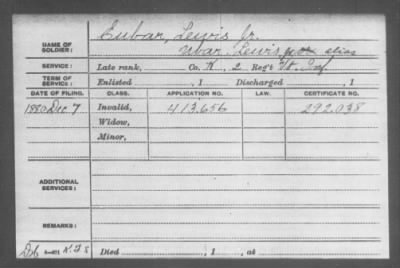 Eubar, Lewis Jr.
NAME OF SOLDIER: Ubar Lewis alias
SERVICE: Late rank, Co. K, 2 Reg't Inf.
TERM OF SERVICE: Enlisted , 1 Discharged , 1
DATE OF FILING. CLASS. APPLICATION NO. LAW. CERTIFICATE NO.
1880 Dec 7 Invalid, 413.656 292.038
Widow,
Minor,
ADDITIONAL SERVICES:
REMARKS:
Died , 1 , at